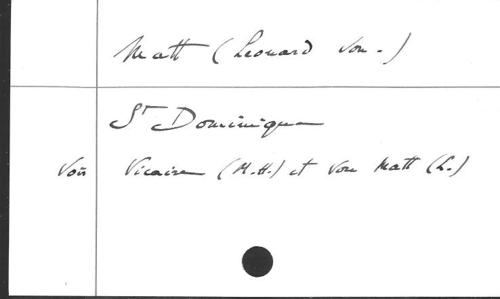 Matt (Leonard von.)
St Dominique
Voir Vicaire (M.H.) et von Matt (L.)